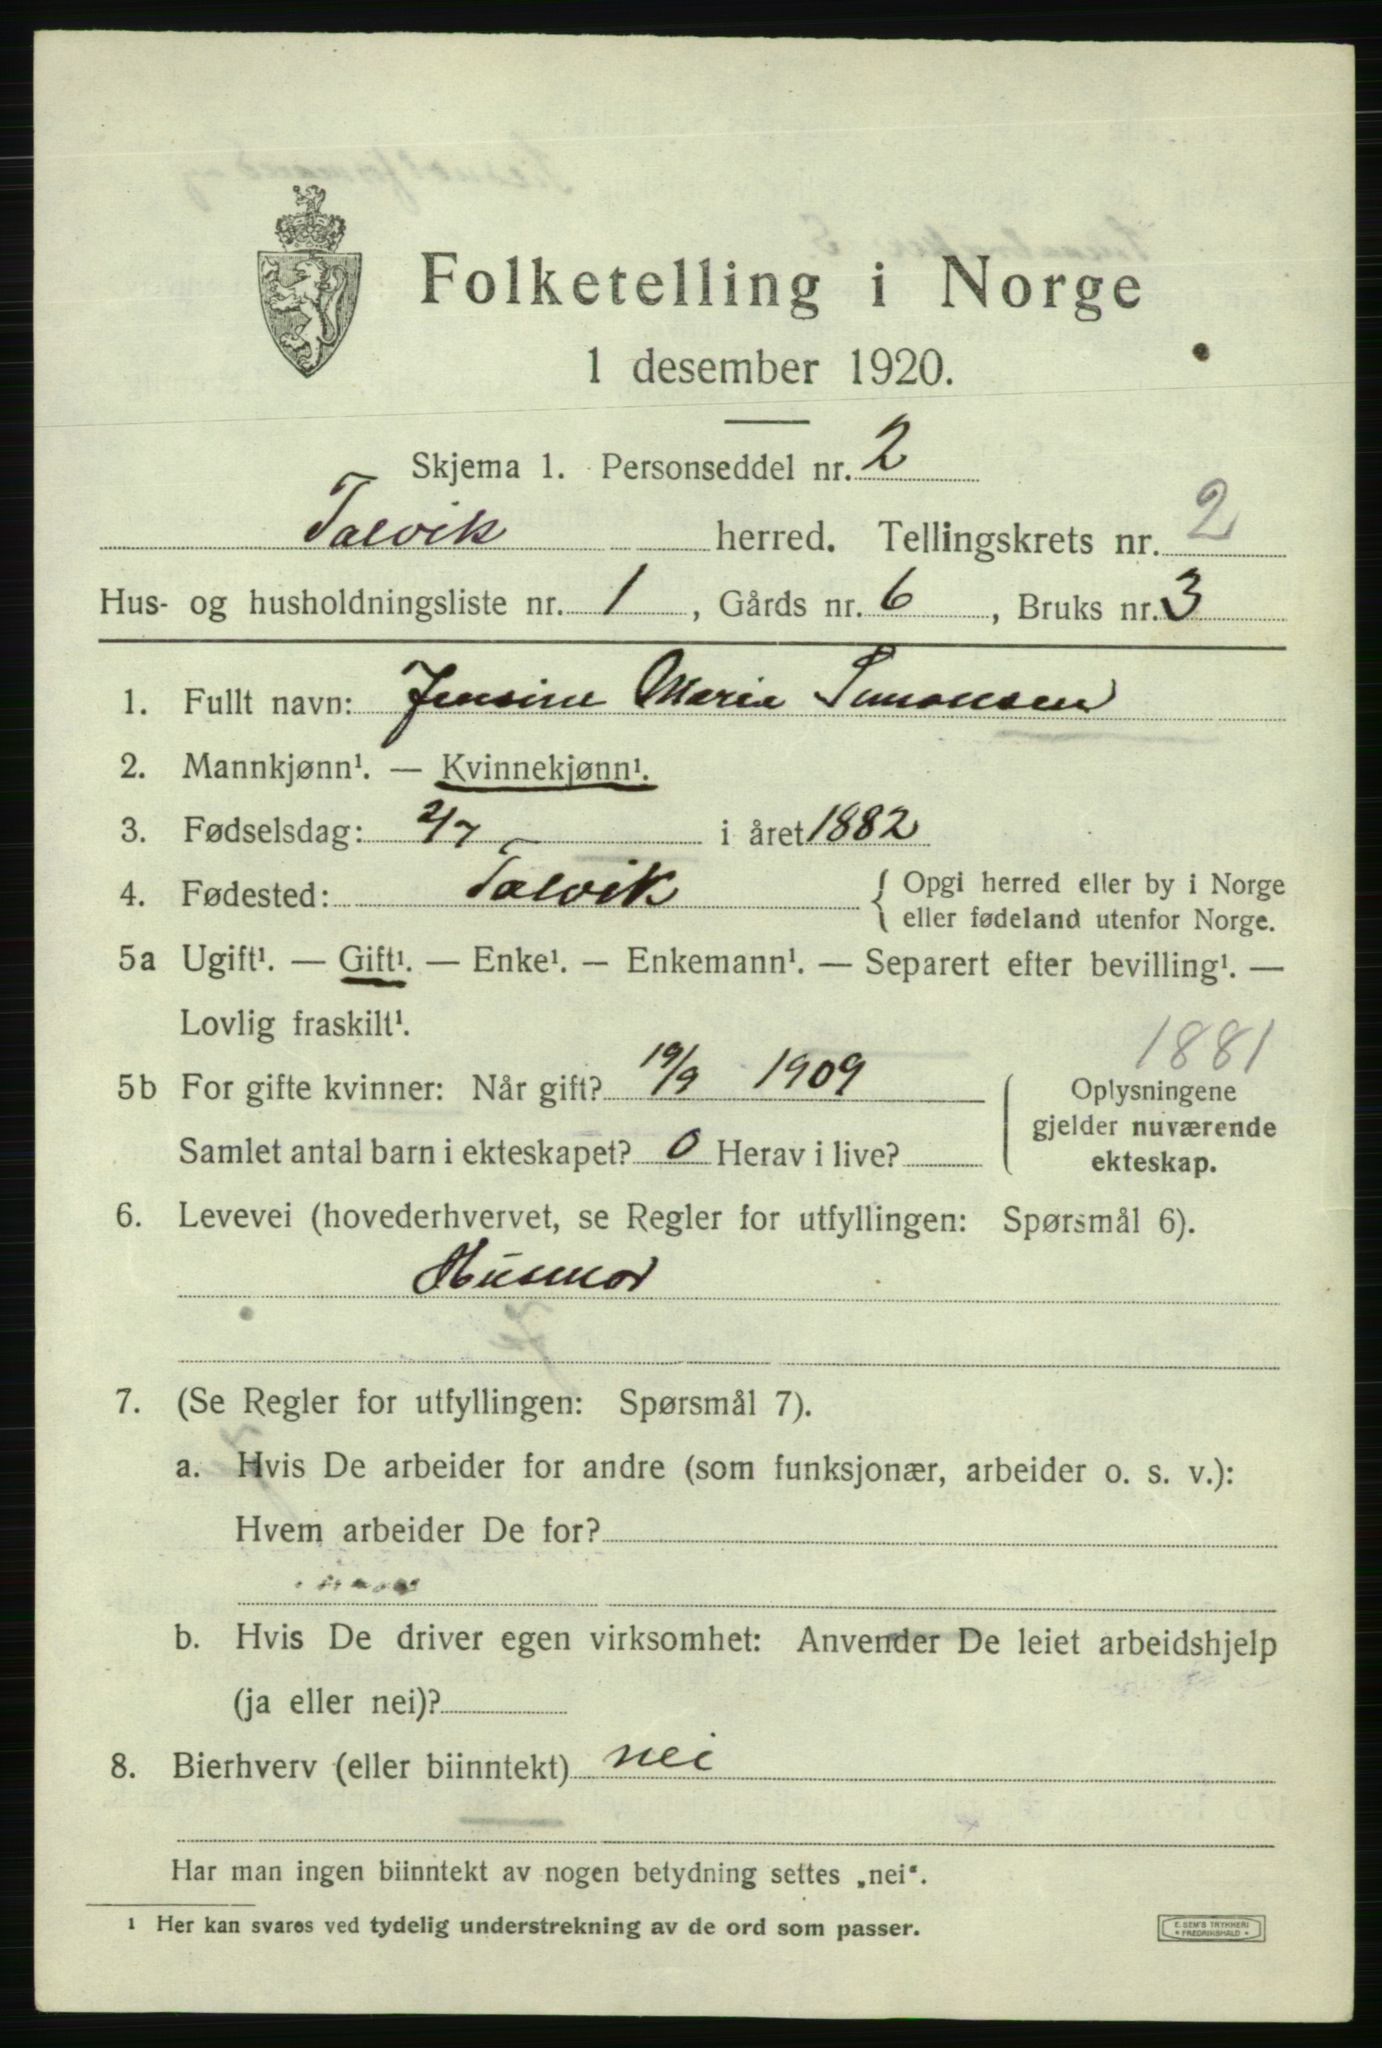 Folketelling i Norge
1 desember 1920.
Skjema 1. Personseddel nr. 2
Talvik herred. Tellingskrets nr. 2
Hus- og husholdningsliste nr. 1, Gårds nr. 6, Bruks nr. 3
1. Fullt navn: Jensine Marie Simonsen
2. Mannkjønn¹. — Kvinnekjønn¹.
3. Fødselsdag: 2/7 i året 1882
4. Fødested: Talvik { Opgi herred eller by i Norge
eller fødeland utenfor Norge.
5a Ugift¹. — Gift¹. — Enke¹. — Enkemann¹. — Separert efter bevilling¹. —
Lovlig fraskilt¹.
1881
5b For gifte kvinner: Når gift? 19/9 1909
Samlet antal barn i ekteskapet? 0 Herav i live?
Oplysningene
gjelder nuværende
ekteskap.
6. Levevei (hovederhvervet, se Regler for utfyllingen: Spørsmål 6).
Husmor
7. (Se Regler for utfyllingen: Spørsmål 7).
a. Hvis De arbeider for andre (som funksjonær, arbeider o. s. v.):
Hvem arbeider De for?
b. Hvis De driver egen virksomhet: Anvender De leiet arbeidshjelp
(ja eller nei)?
8. Bierhverv (eller biinntekt) nei
Har man ingen biinntekt av nogen betydning settes „nei“.
¹ Her kan svares ved tydelig understrekning av de ord som passer.
E. SEM'S TRYKKERI
FREDRIKSHALD